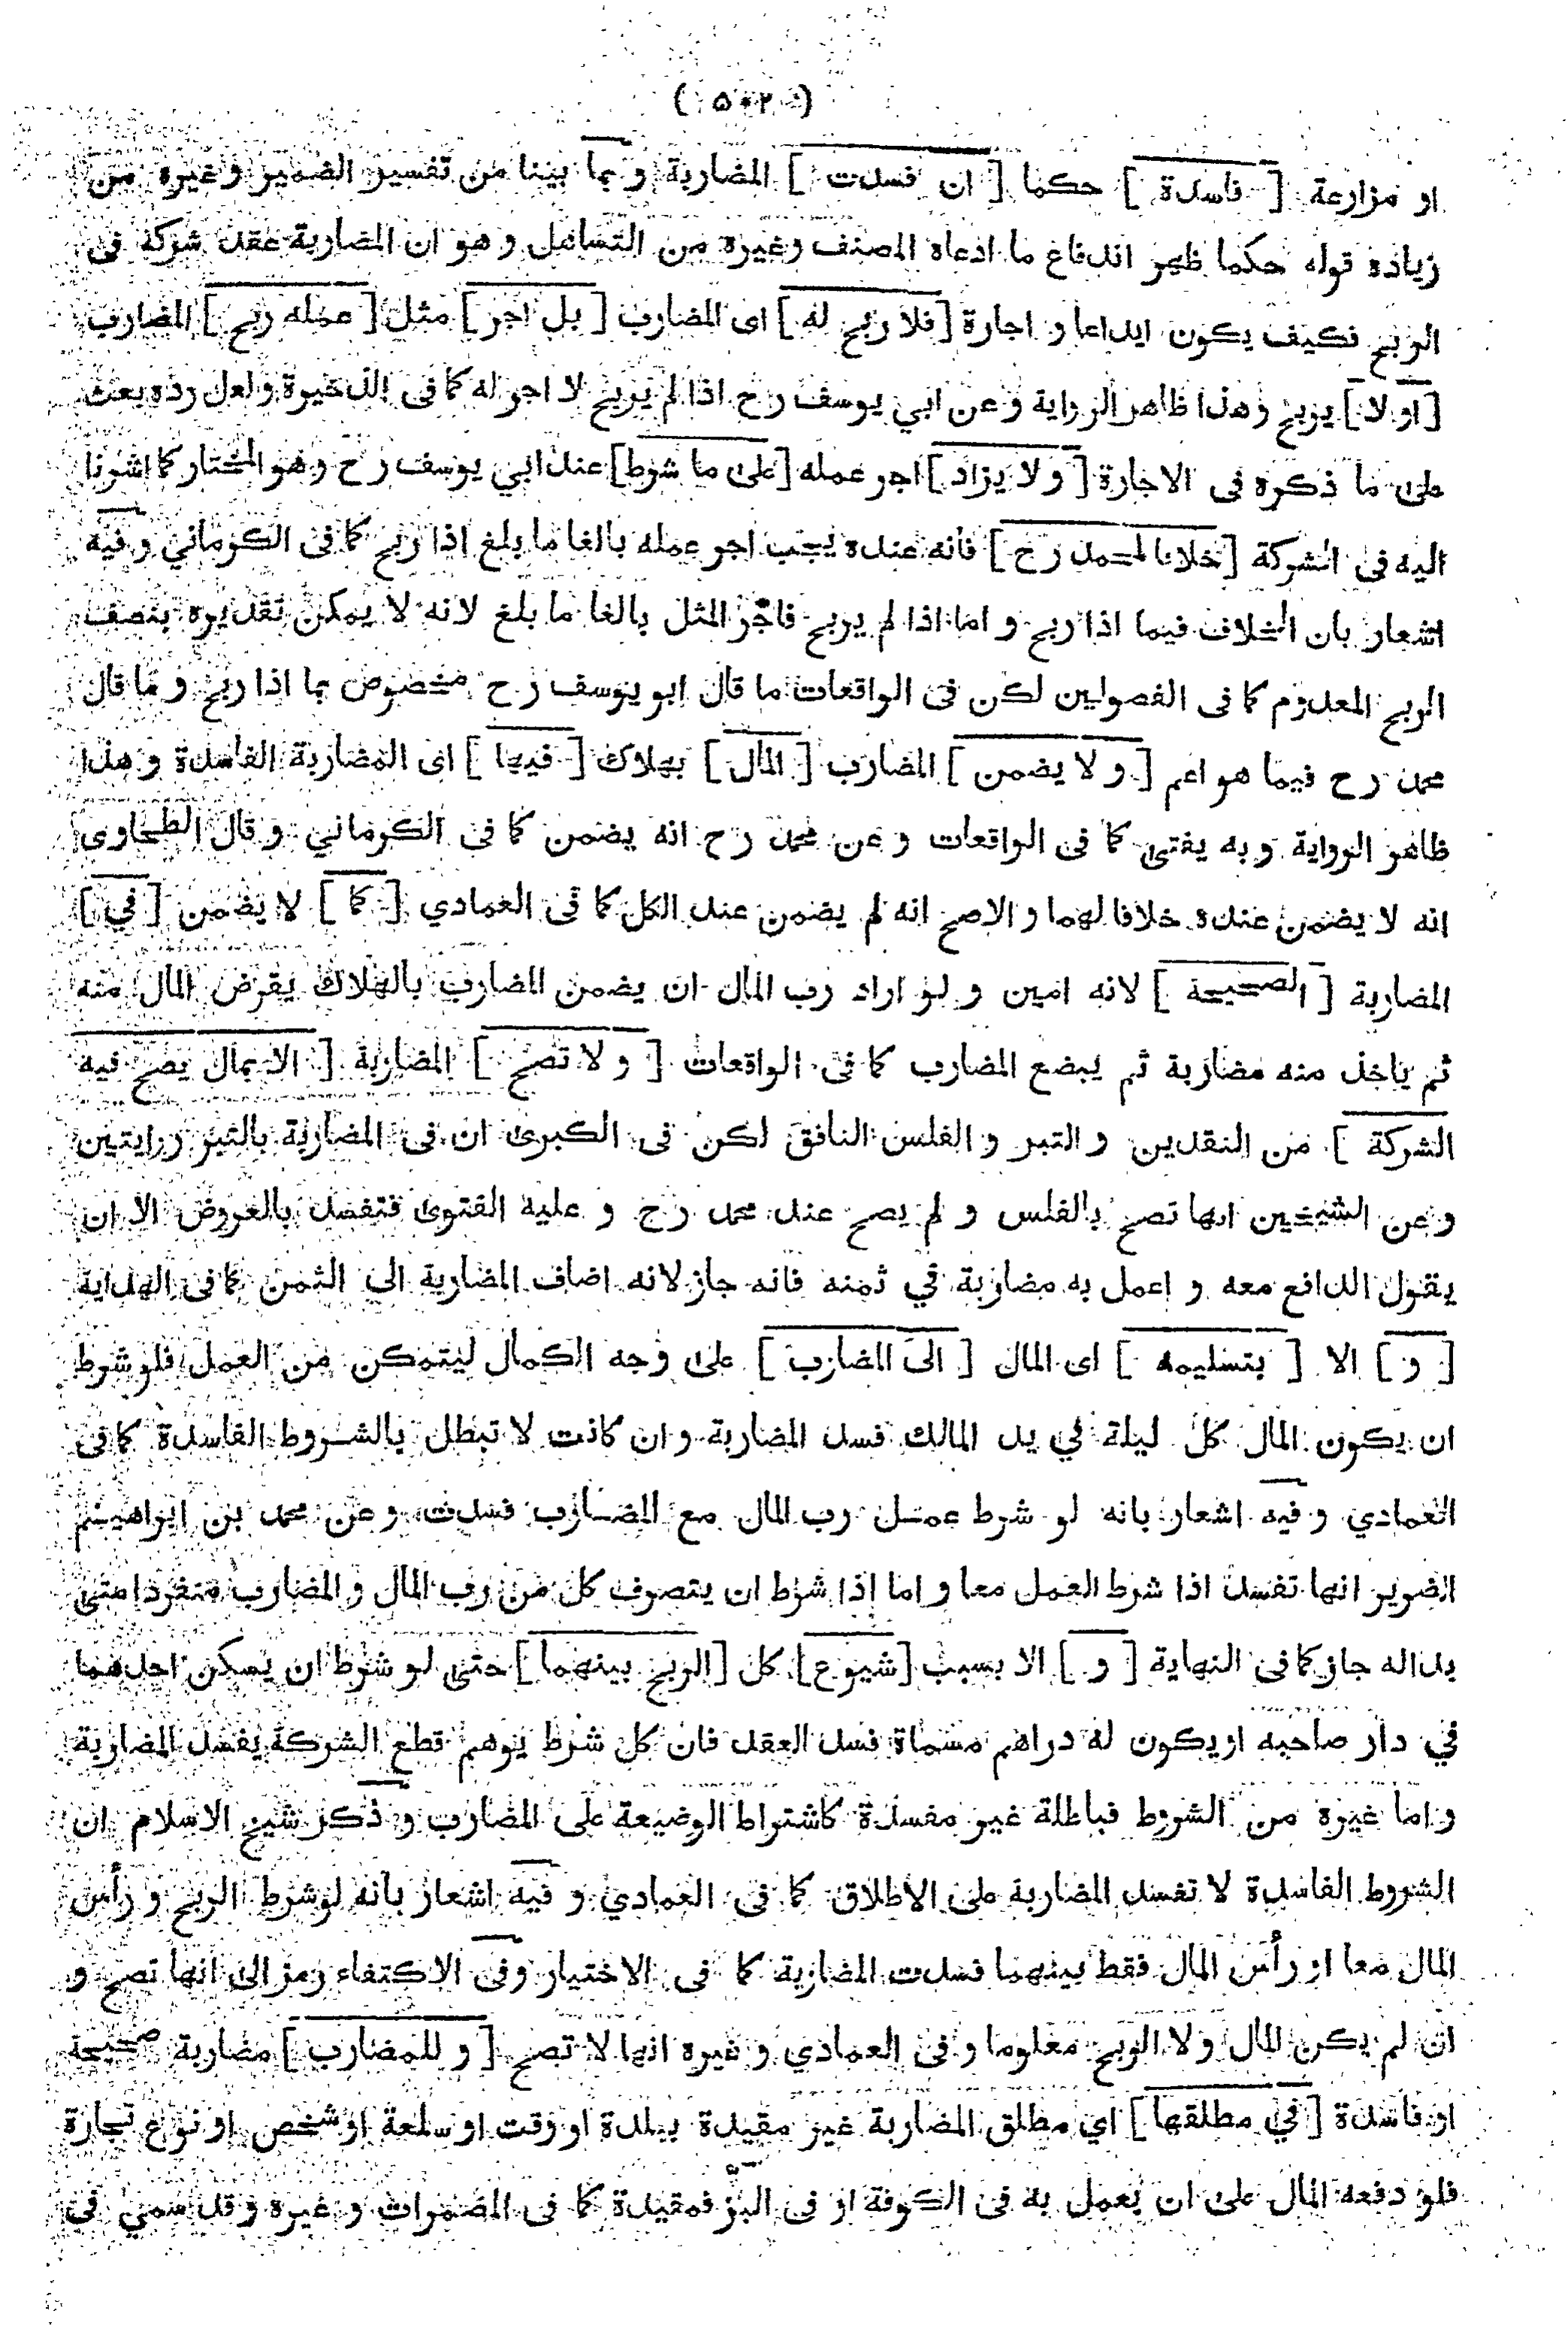 ( ٥٠٢ )
او مزارعة [ فاسدة ] حكما [ ان فسدت ] المضاربة و بما بيننا من تفسير الضمير وغيره من
زيادة قوله حكما ظهر اندفاع ما ادعاه المصنف وغيره من التساهل و هو ان المضاربة عقد شركة فى
الربح فكيف يكون ايداعا و اجارة [فلا ربح له ] اى المضارب [ بل اجر ] مثل [ عمله ربح ] المضارب
[ او لا ] يربح وهذا ظاهر الرواية وعن ابي يوسف رح اذا لم يربح لا اجر له كما فى الذخيرة ولعل رده بعث
على ما ذكره فى الاجارة [ و لا يزاد ] اجر عمله [ على ما شرط ] عند ابي يوسف رح وهو المختار كما اشرنا
اليه فى الشركة [ خلافا لمحمد رح ] فانه عنده يجب اجر عمله بالغا ما بلغ اذا ربح كما فى الكرماني و فيه
اشعار بان الخلاف فيما اذا ربح و اما اذا لم يربح فاجر المثل بالغا ما بلغ لانه لا يمكن تقديره بنصف
الربح المعدوم كما فى الفصولين لكن فى الواقعات ما قال ابو يوسف رح مخصوص بما اذا ربح و ما قال
محمد رح فيما هو اعم [ و لا يضمن ] المضارب [ المال ] بهلاك [ فيها ] اى المضاربة الفاسدة و هذا
ظاهر الرواية و به يفتى كما فى الواقعات و عن محمد رح انه يضمن كما فى الكرماني و قال الطحاوى
انه لا يضمن عنده خلافا لهما و الاصح انه لم يضمن عند الكل كما فى العمادي [ كما ] لا يضمن [ في ]
المضاربة [ الصحيحة ] لانه امين و لو اراد رب المال ان يضمن المضارب بالهلاك يقرض المال منه
ثم ياخذ منه مضاربة ثم يبضع المضارب كما فى الواقعات [ و لا تصح ] المضاربة [ الا بمال يصح فيه
الشركة ] من النقدين و التبر و الفلس النافق لكن فى الكبرى ان فى المضاربة بالتبر روايتين
و عن الشيخين انها تصح بالفلس و لم يصح عند محمد رح و عليه الفتوى فتفسد بالعروض الا ان
يقول الدافع معه و اعمل به مضاربة في ثمنه فانه جاز لانه اضاف المضاربة الى الثمن كما فى الهداية
[ و ] الا [ بتسليمه ] اى المال [ الى المضارب ] على وجه الكمال ليتمكن من العمل فلو شرط
ان يكون المال كل ليلة في يد المالك فسد المضاربة و ان كانت لا تبطل بالشروط الفاسدة كما فى
العمادي و فيه اشعار بانه لو شرط عمل رب المال مع المضارب فسدت و عن محمد بن ابراهيم
الضرير انها تفسد اذا شرط العمل معا و اما اذا شرط ان يتصرف كل من رب المال و المضارب منفردا متى
بدا له جاز كما فى النهاية [ و ] الا بسبب [شيوع] كل [الربح بينهما] حتى لو شرط ان يسكن احدهما
في دار صاحبه او يكون له دراهم مسماة فسد العقد فان كل شرط يوهم قطع الشركة يفسد المضاربة
و اما غيره من الشروط فباطلة غير مفسدة كاشتراط الوضيعة على المضارب و ذكر شيخ الاسلام ان
الشروط الفاسدة لا تفسد المضاربة على الاطلاق كما فى العمادي و فيه اشعار بانه لو شرط الربح و رأس
المال معا او رأس المال فقط بينهما فسدت المضاربة كما فى الاختيار وفى الاكتفاء رمز الى انها تصح و
ان لم يكن المال و لا الربح معلوما و فى العمادي و غيره انها لا تصح [ و للمضارب ] مضاربة صحيحة
او فاسدة [ في مطلقها ] اي مطلق المضاربة غير مقيدة ببلدة او وقت او سلعة او شخص او نوع تجارة
فلو دفعه المال على ان يعمل به فى الكوفة او فى البز فمقيدة كما فى المضمرات و غيره و قد سمي فى